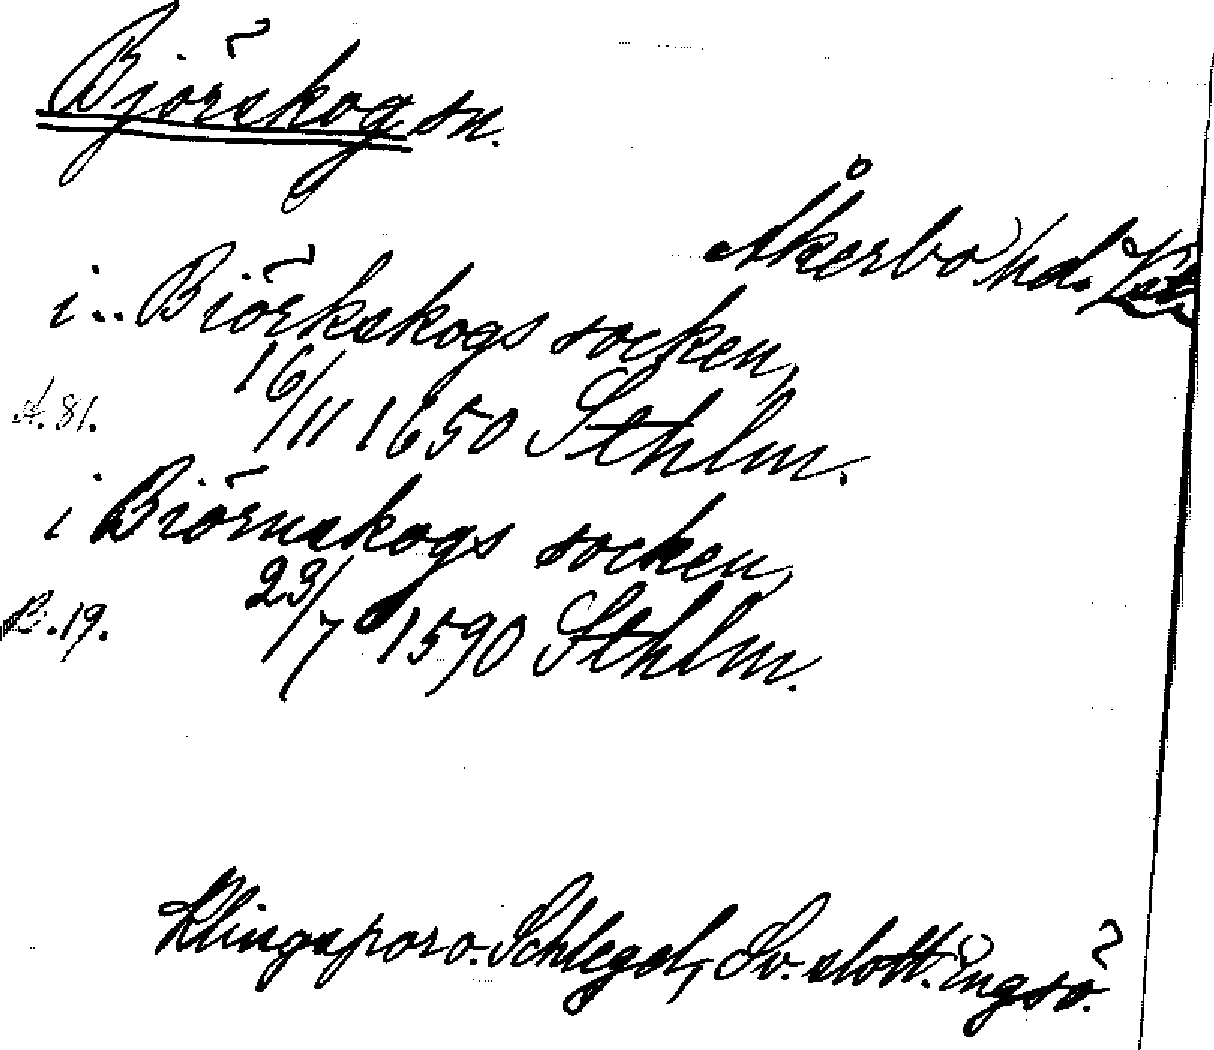 Björskog sn.
Åkerbo hd.
i.. Biörkskogs socken,
16/11 1650 Sthlm.
s. 81.
i Biörnskogs socken,
23/7 1590 Sthlm.
s. 19.
Klingspor o. Schlegel, Sv. slott. Engsö.